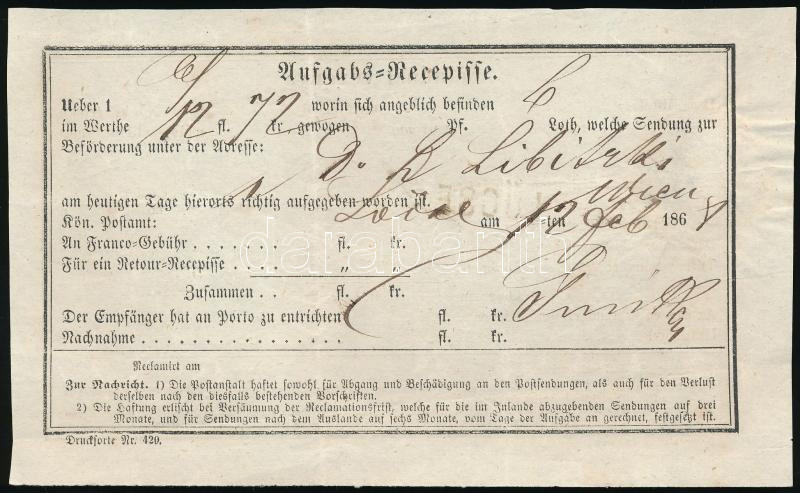 Aufgabs=Recepisse.
Ueber 1 worin sich angeblich befinden
im Werthe 12 fl. 72 kr. gewogen Pf. 6 Loth, welche Sendung zur
Beförderung unter der Adresse:
Wien
am heutigen Tage hierorts richtig aufgegeben worden ist.
Kön. Postamt: am 12 -ten Feb 1868
An Franco=Gebühr . . . . . . . fl. kr.
Für ein Retour=Recepisse . . . . „ „
Zusammen . . fl. kr.
Der Empfänger hat an Porto zu entrichten fl. kr.
Nachnahme . . . . . . . . . . . . . . . fl. kr.
Reclamirt am
Zur Nachricht. 1) Die Postanstalt haftet sowohl für Abgang und Beschädigung an den Postsendungen, als auch für den Verlust
derselben nach den diesfalls bestehenden Vorschriften.
2) Die Haftung erlischt bei Versäumung der Reclamationsfrist, welche für die im Inlande abzugebenden Sendungen auf drei
Monate, und für Sendungen nach dem Auslande auf sechs Monate, vom Tage der Aufgabe an gerechnet, festgesetzt ist.
Drucksorte Nr. 420.
darabanth